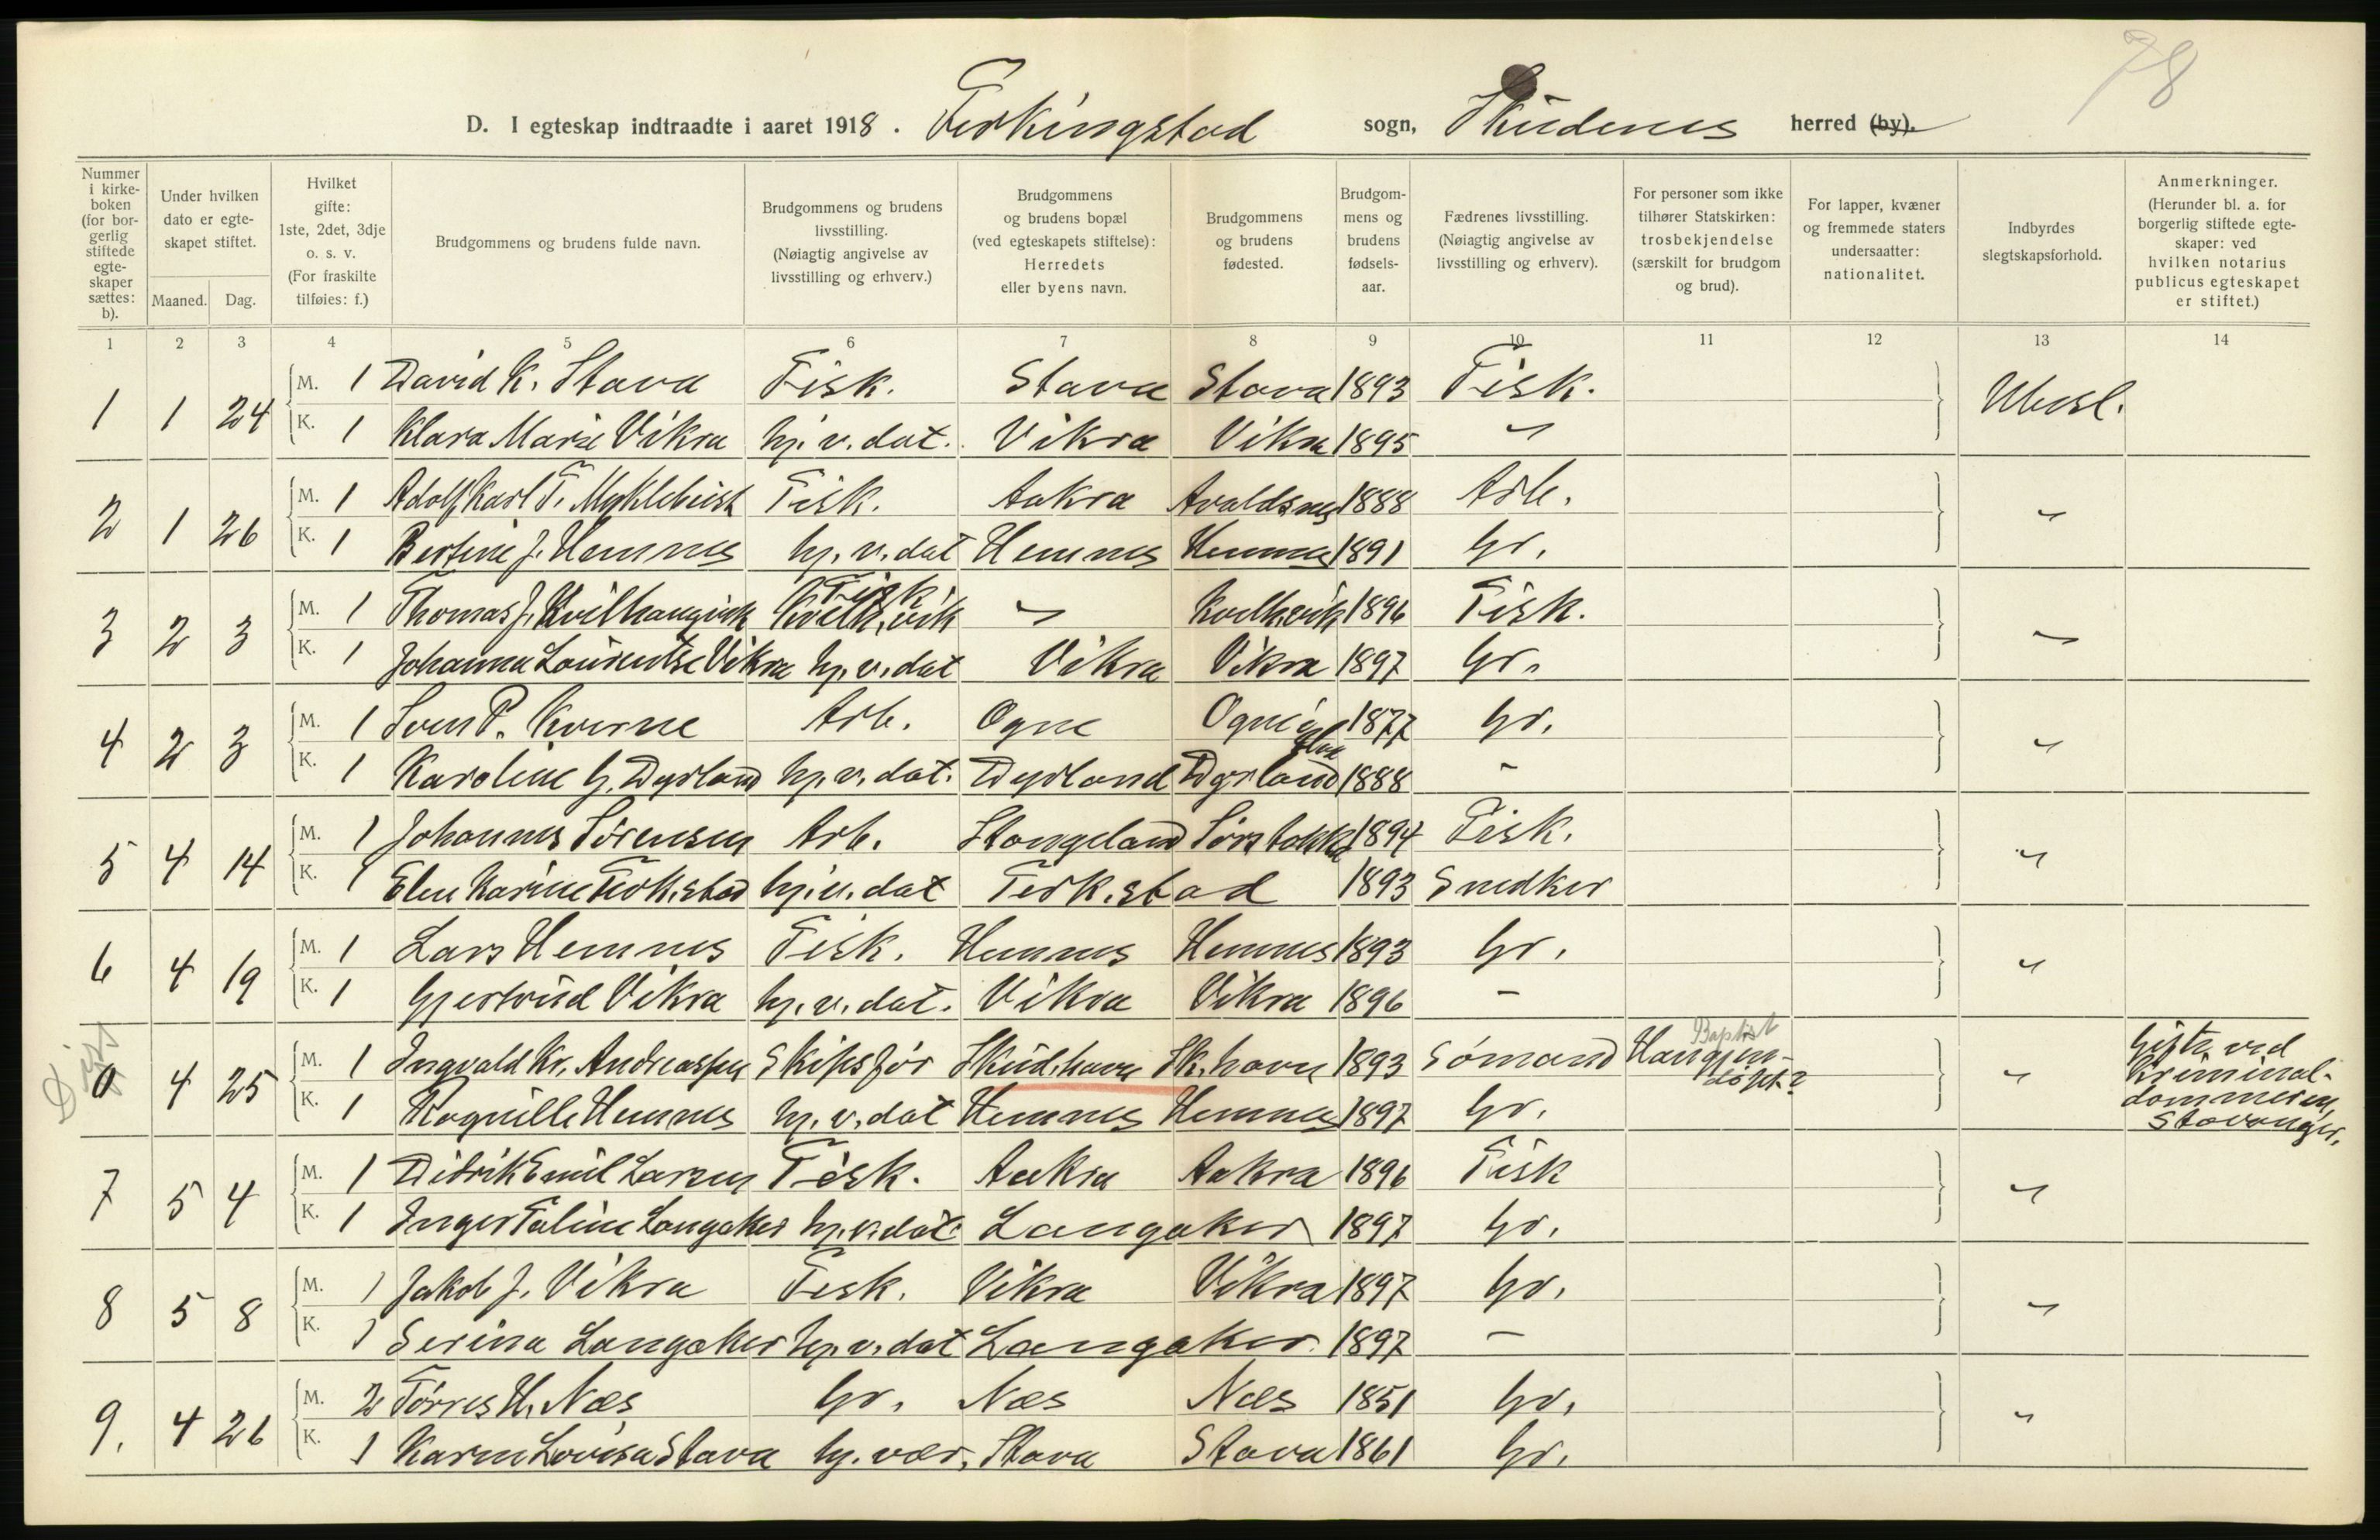 78
D. I egteskap indtraadte i aaret 1918. Ferkingstad sogn, Skudenes herred (by).
Nummer i kirkeboken (for borgerlig stiftede egteskaper sættes: b).
Under hvilken dato er egteskapet stiftet.
Maaned. Dag.
Hvilket gifte: 1ste, 2det, 3dje o. s. v. (For fraskilte tilføies: f.)
Brudgommens og brudens fulde navn.
Brudgommens og brudens livsstilling. (Nøiagtig angivelse av livsstilling og erhverv.)
Brudgommens og brudens bopæl (ved egteskapets stiftelse): Herredets eller byens navn.
Brudgommens og brudens fødested.
Brudgommens og brudens fødselsaar.
Fædrenes livsstilling. (Nøiagtig angivelse av livsstilling og erhverv).
For personer som ikke tilhører Statskirken: trosbekjendelse (særskilt for brudgom og brud).
For lapper, kvæner og fremmede staters undersaatter: nationalitet.
Indbyrdes slegtskapsforhold.
Anmerkninger. (Herunder bl. a. for borgerlig stiftede egteskaper: ved hvilken notarius publicus egteskapet er stiftet.)
1 2 3 4 5 6 7 8 9 10 11 12 13 14
1 1 24 M. 1 David K. Stava Fisk. Stava Stava 1893 Fisk. Ubesl.
K. 1 Klara Marie Vikra hj. v. dat. Vikra Vikra 1895 "
2 1 26 M. 1 Adolf Karl T. Myklebust Fisk. Aakra Avaldsnes 1888 Arb. "
K. 1 Bertine J. Hemnes hj. v. dat Hemnes Hemnes 1891 Gr.
3 2 3 M. 1 Thomas J. Kvilhaugvik Fisk Kvilh.vik " Kvilh.vik 1896 Fisk. "
K. 1 Johanna Lourentse Vikra hj. v. dat Vikra Vikra 1897 Gr.
4 2 3 M. 1 Sven P. Kverne Arb. Ogne Ogne 1877 Gr. "
K. 1 Karoline G. Dyrland hj. v. dat. Dyrland Dyrland 1888 -
5 4 14 M. 1 Johannes Sørensen Arb. Stangeland Sørstokke 1894 Fisk. "
K. 1 Elen Karine Ferk.stad hj. v. dat Ferk.stad 1893 Snedker
6 4 19 M. 1 Lars Hemnes Fisk. Hemnes Hemnes 1893 Gr. "
K. 1 Gjertrud Vikra hj. v. dat. Vikra Vikra 1896 -
Diss
0 4 25 M. 1 Ingvald Kr. Andreassen Skipsfør Skud.havn Sk.havn 1893 Sømand Baptist Han gjendøpt? " Gifte ved Kriminaldommeren, Stavanger.
K. 1 Ragnille Hemnes hj. v. dat Hemnes Hemnes 1897 Gr.
7 5 4 M. 1 Didrik Emil Larsen Fisk. Aakra Aakra 1896 Fisk "
K. 1 Inger Taline Langaker hj. v. dat. Langaker 1897 Gr.
8 5 8 M. 1 Jakob J. Vikra Fisk. Vikra Vikra 1897 Gr. "
K. 1 Serina Langaker hj. v. dat Langaker 1897 -
9. 4 26 M. 2 Tørres H. Næs Gr. Næs Næs 1851 Gr. "
K. 1 Karen Lovisa Stava hj. vær. Stava Stava 1861 Gr.